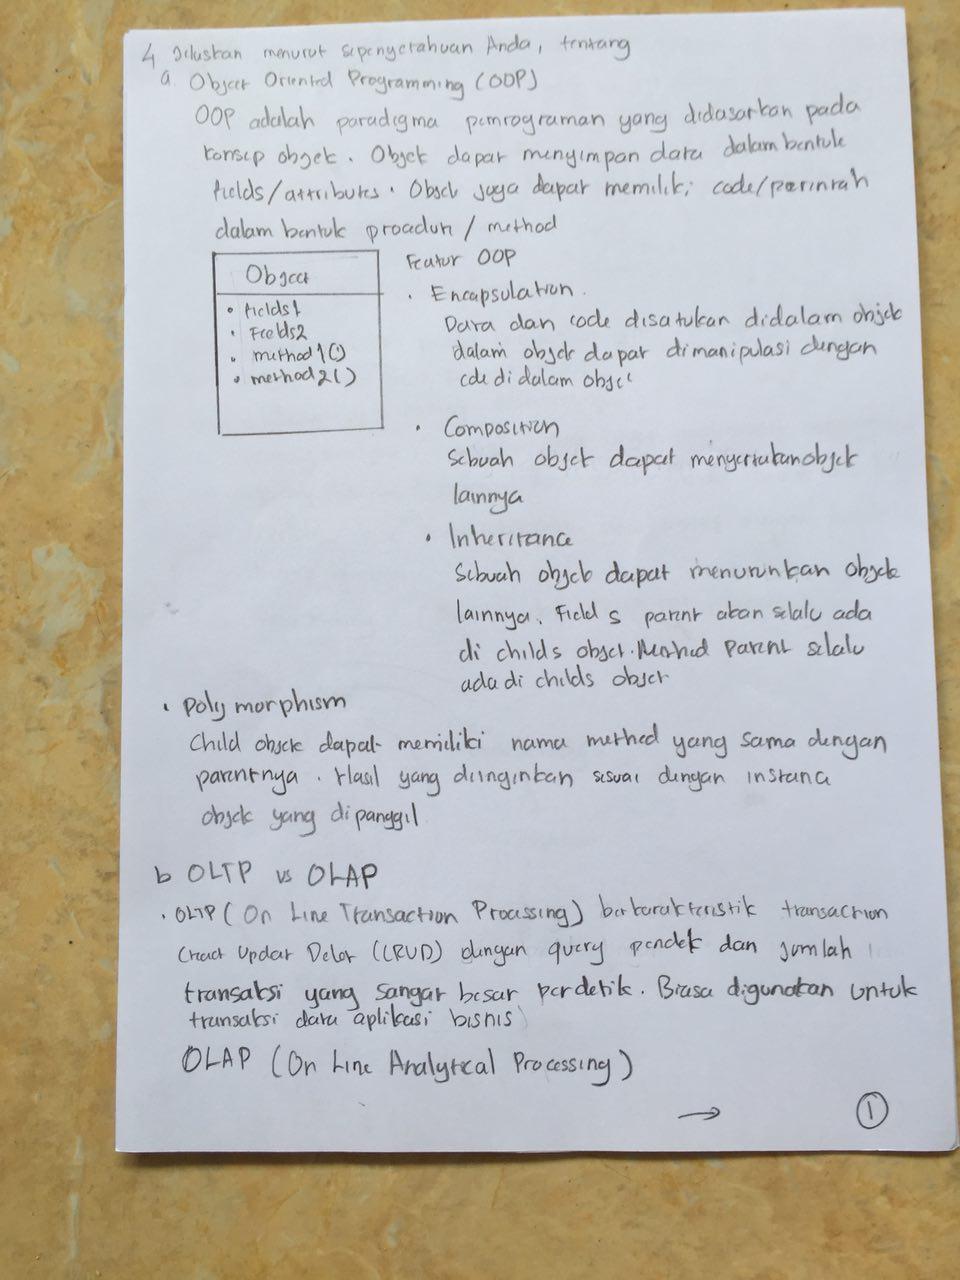 4 Jeluskan menurut sepengetahuan Anda, tentang
a. Object Oriented Programming (OOP)
OOP adalah paradigma pemrograman yang didasarkan pada
konsep objek. Objek dapat menyimpan data dalam bentuk
fields/attributes. Objek juga dapat memiliki code/perintah
dalam bentuk procedur / method
Object
• fields1
• Fields2
• method1()
• method2()
Featur OOP
• Encapsulation.
Data dan code disatukan didalam objek
dalam objek dapat dimanipulasi dengan
cde di dalam objek
• Composition
Sebuah objek dapat menyertakan objek
lainnya
• Inheritance
Sebuah objek dapat menurunkan objek
lainnya. Fields parent akan selalu ada
di childs object. Method Parent selalu
ada di childs object
• Polymorphism
Child objek dapat memiliki nama method yang sama dengan
parentnya. Hasil yang diinginkan sesuai dengan instance
objek yang dipanggil
b OLTP vs OLAP
• OLTP (On Line Transaction Processing) berkarakteristik transaction
Creact Updat Delet (CRUD) dengan query pendek dan jumlah
transaksi yang sangat besar perdetik. Biasa digunakan untuk
transaksi data aplikasi bisnis
OLAP (On Line Analytical Processing)
→ 1